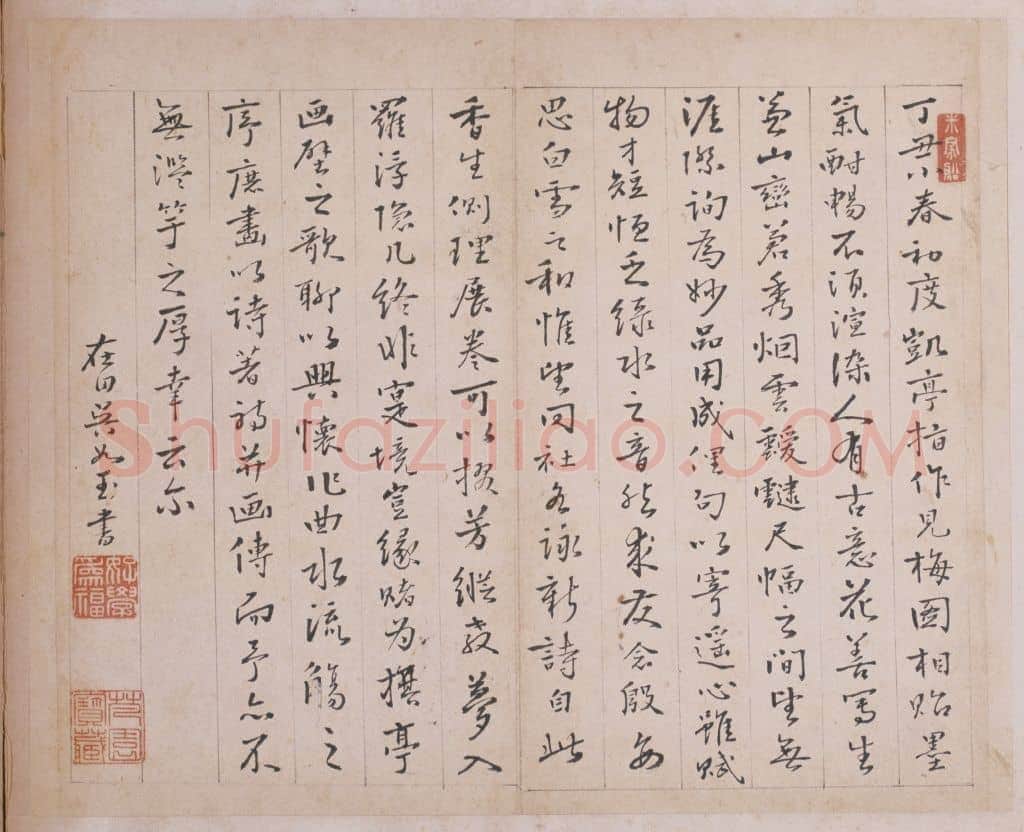 丁丑小春初度凱亭指作見梅圖相貽墨
氣酣暢不須渲染人有古意花善寫生
山巒蒼秀烟雲靉靆尺幅之間望無
涯際詢為妙品用成俚句以寄遥心雖賦
物才短恒乏緑水之音然求友念殷每
思白雪之和惟望同社各詠新詩自此
香生側理展卷可以掇芳縱教夢入
羅浮隐几終非寔境豈緣为撰亭
画壁之歌聊以興懷曲水流觴之
序庶畫以詩著詩并画傳而予亦不
無濫竽之厚幸云尔
在田吳如玉書
Shufaziliao.COM